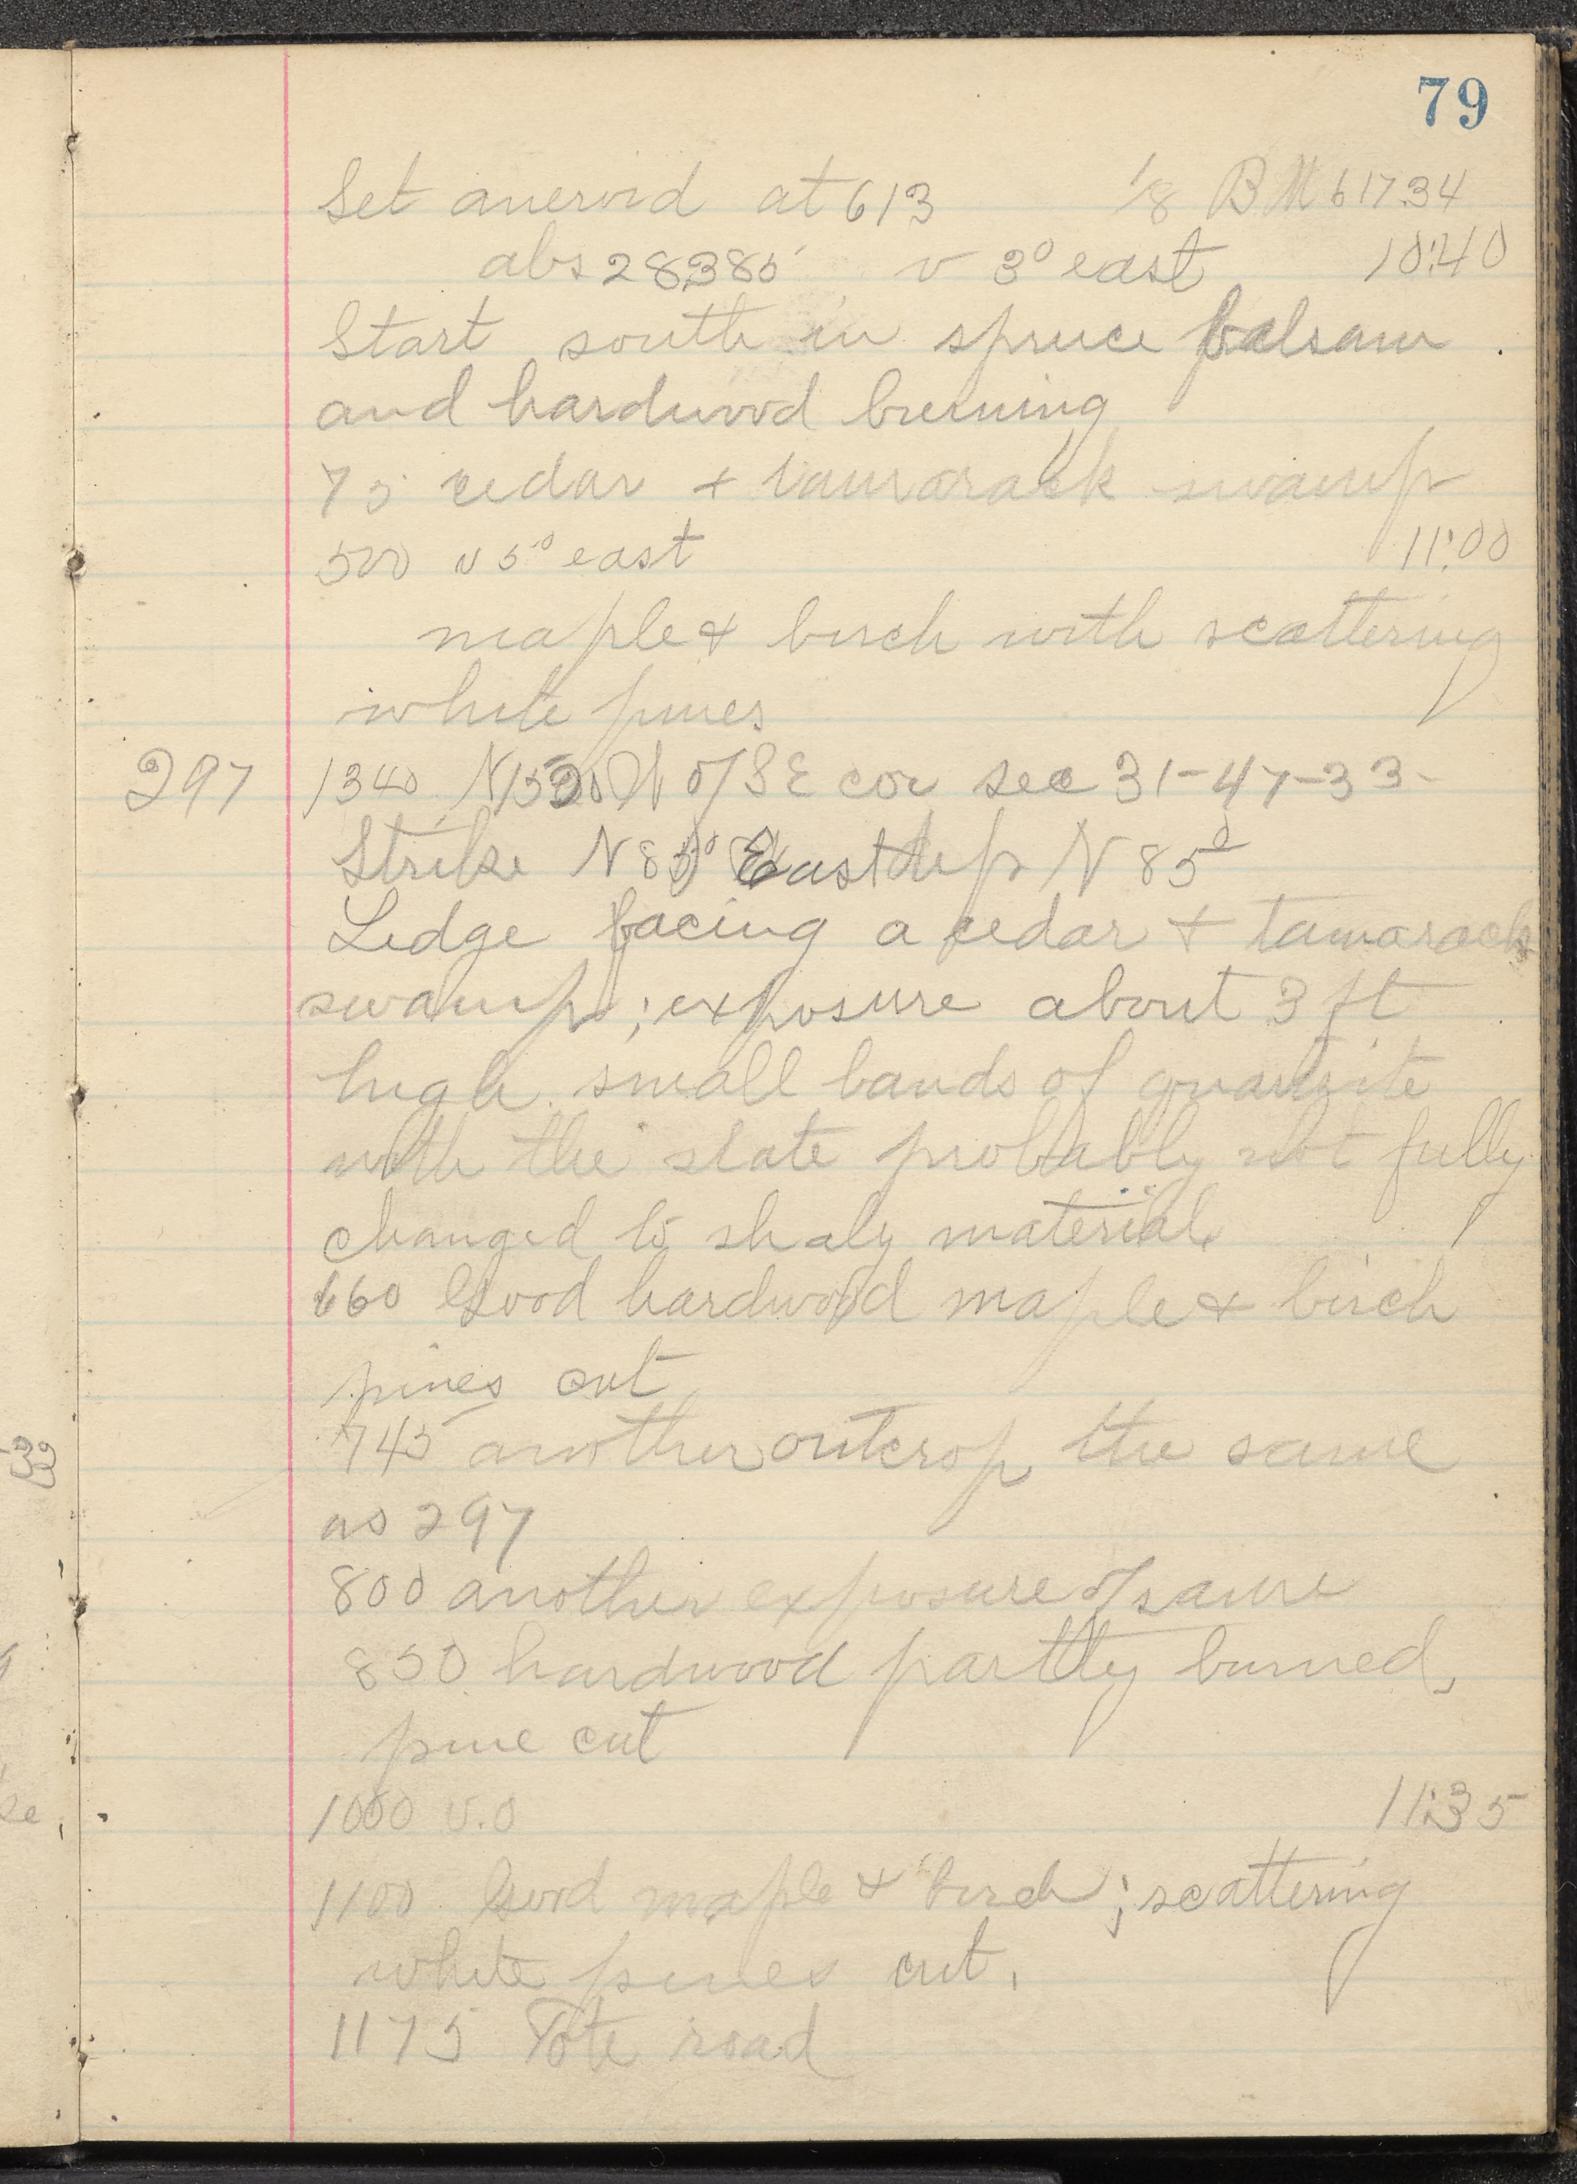 79
Set aneroid at 613 1/8 BM 617.34
abs 28.385 v 3° east 10:40
Start south in spruce balsam
and hardwood burning
75 cedar + tamarack swamp
500 v 5° east 11:00
maple & birch with scattering
white pines
297 1340 N 1520 W of SE cor sec 31-47-33-
Strike N 85° East dip N 85°
Ledge facing a cedar + tamarack
swamp; exposure about 3 ft
high. small bands of quartzite
with the slate probably not fully
changed to shaly material
660 Good hardwood maple & birch
pines cut
745 another outcrop the same
as 297
800 another exposure of same
850 hardwood partly burned,
pine cut
1000 v.0 11:35
1100 Good maple & birch; scattering
white pines cut.
1175 Tote road